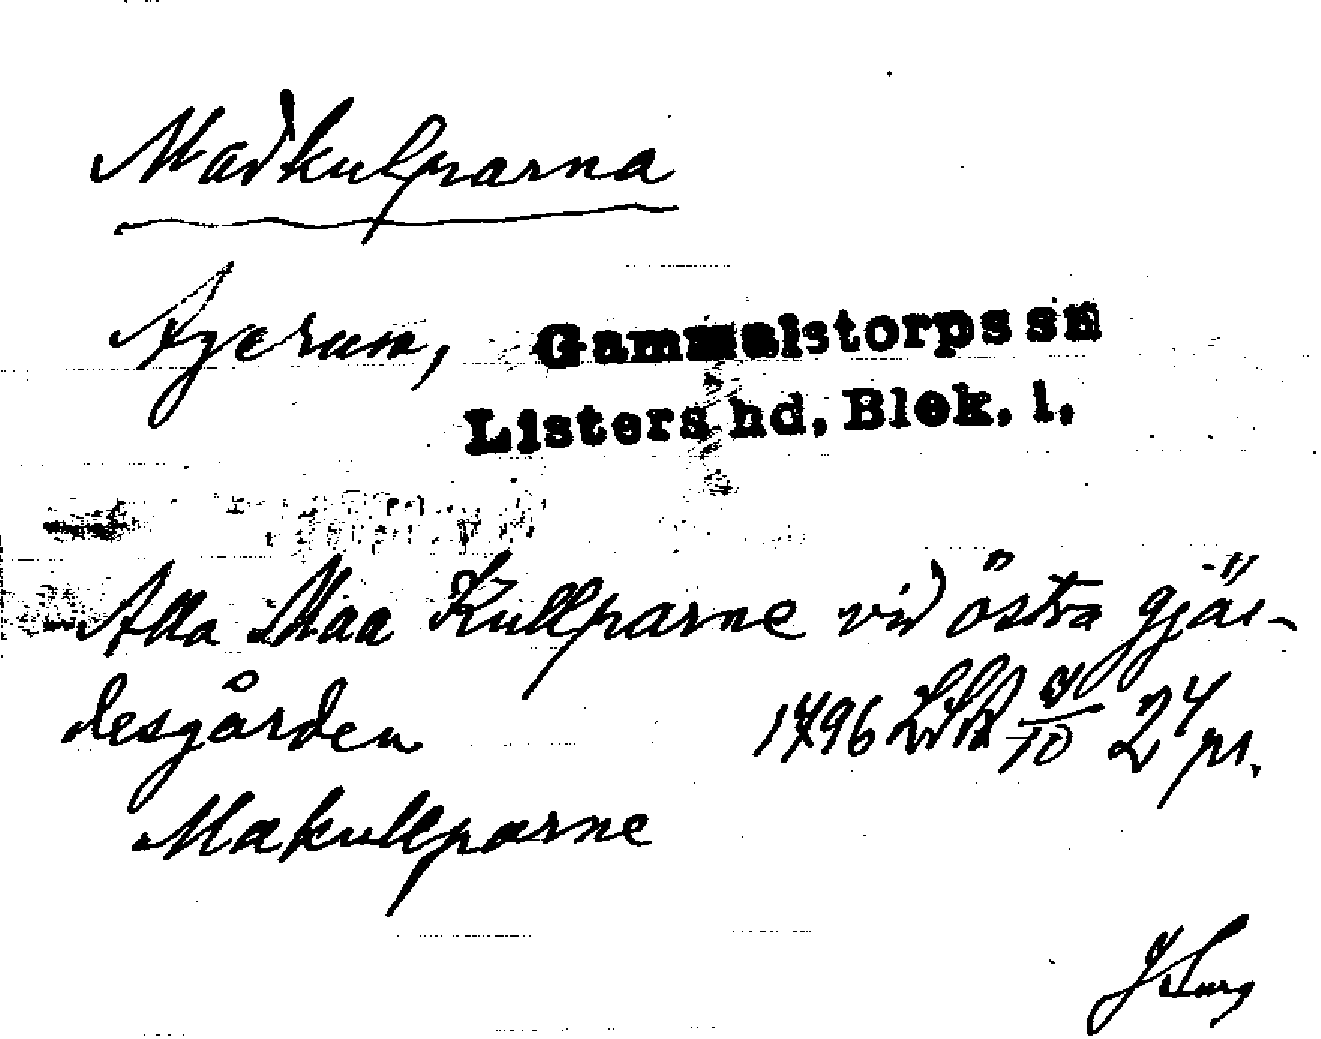 Madkulparna
Agerum, Gammalstorps sn
Listers hd. Blek. l.
Alla Maa Kullparne vid östra gjär-
desgården 1796 LSA 9/10 24 pr.
Makullparne